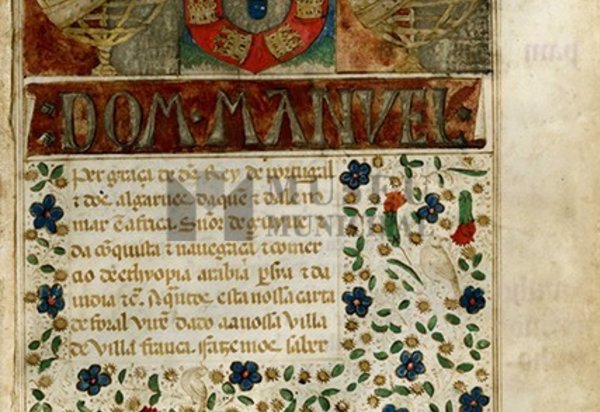 DOM·MANVEL·
per graça de ds Rey de portugal
t dos algarues daquē t dalē no
mar ē africa Sñor de guinee t
da cōquista t nauegaçã t comer
cio de ethyopia arabia persia t da
india tc̄. A q̄ntos esta nossa carta
de foral virē dado aa nossa villa
de villa franca. fazemos saber
MUSEU
MUNICIPAL